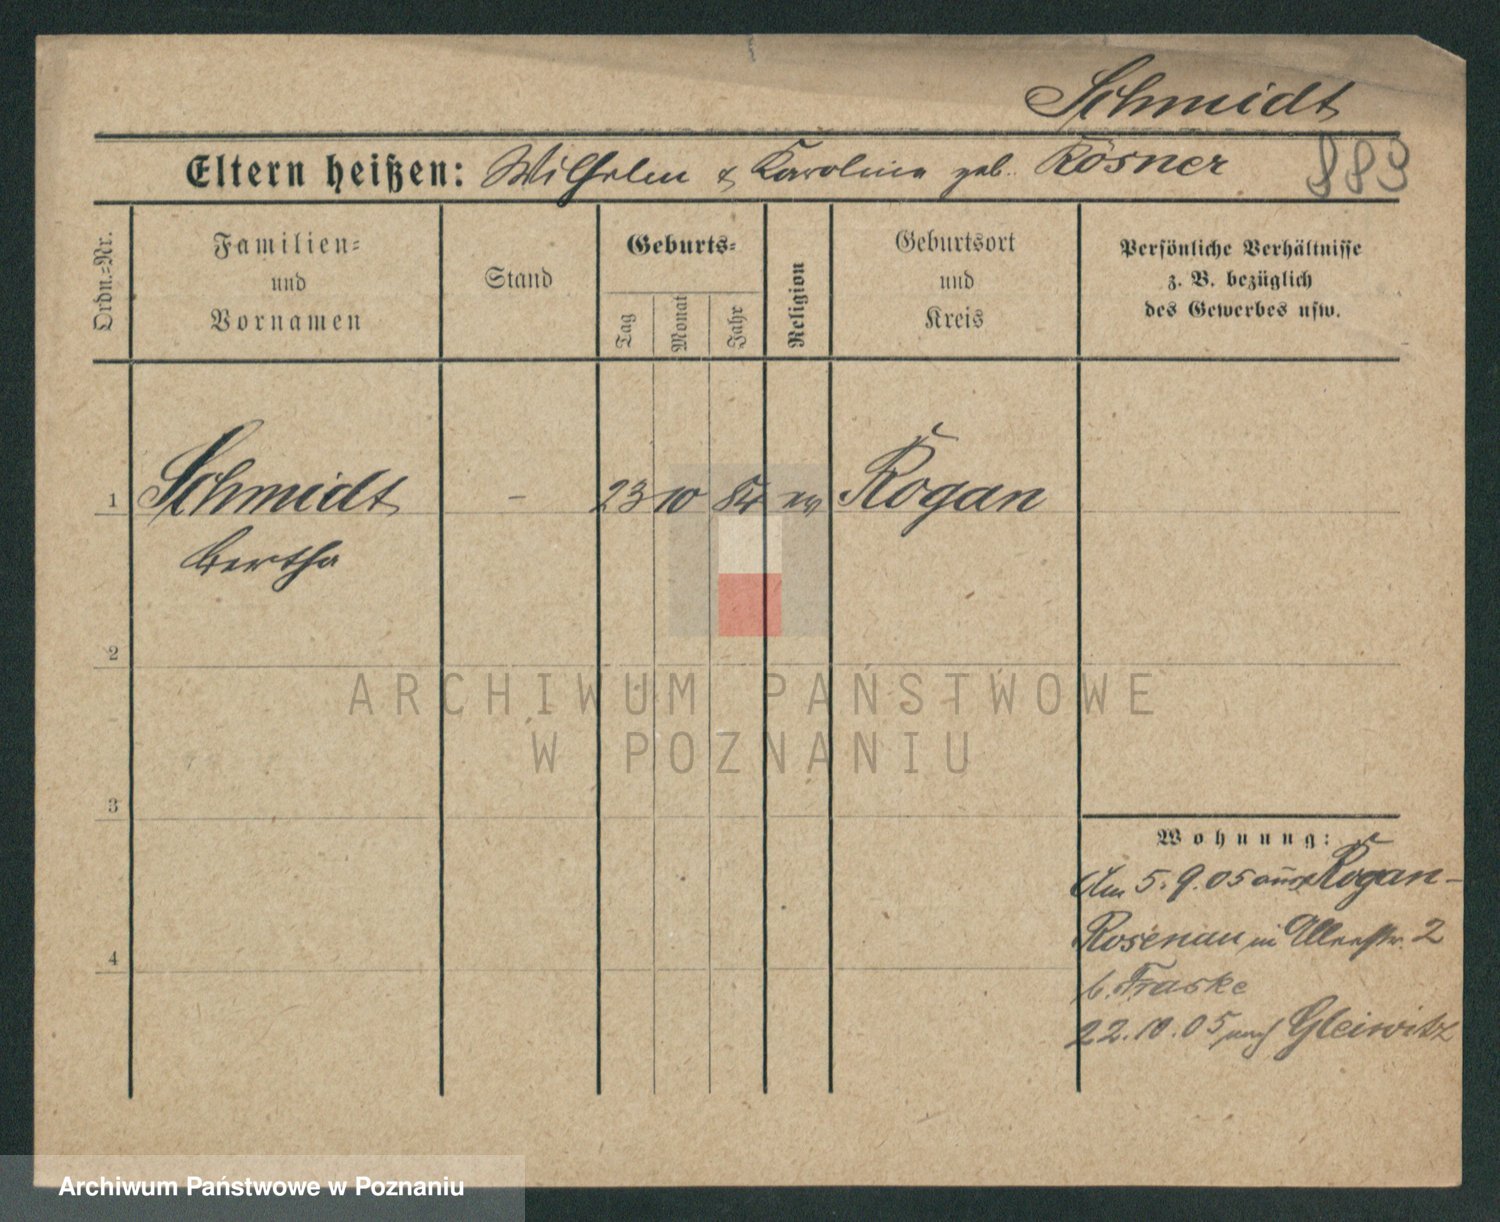 Schmidt
Eltern heißen: Wilhelm & Karoline geb. Rösner 883
Ordn.=Nr.
Familien=
und
Vornamen
Stand
Geburts=
Tag
Monat
Jahr
Religion
Geburtsort
und
Kreis
Persönliche Verhältnisse
z. B. bezüglich
des Gewerbes usw.
1 Schmidt - 23 10 84 ev Rogan
Bertha
2
ARCHIWUM PAŃSTWOWE
W POZNANIU
3
Wohnung:
Am 5.9.05 aus Rogan-
Rosenau in Allerstr. 2
b. Fraske
4
22.10.05 nach Gleiwitz
Archiwum Państwowe w Poznaniu